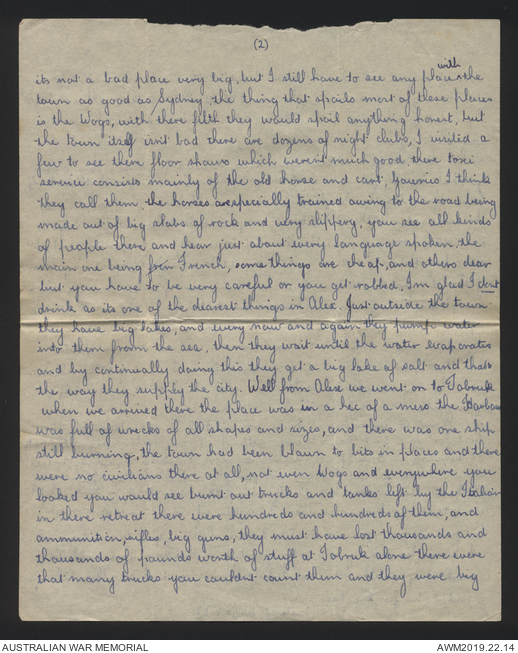 (2)
with
its not a bad place very big, but I still have to see any place the
town as good as Sydney. the thing that spoils most of these places
is the Wogs, with there filth they would spoil anything honest, but
the town itself isnt bad there are dozens of night clubs, I visited a
few to see there floor shows which werent much good there taxi
service consists mainly of the old horse and cart, Gawrio I think
they call them the horses are specially trained owing to the road being
made out of big slabs of rock and very slippery, you see all kinds
of people there and hear just about every language spoken, the
main one being French, some things are cheap, and others dear
but you have to be very careful or you get robbed, Im glad I dont
drink as its one of the dearest things in Alex. Just outside the town
they have big lakes, and every now and again they pump water
into them from the sea, then they wait until the water evaporates
and by continually doing this they get a big lake of salt and thats
the way they supply the city. Well from Alex we went on to Tobruk
when we arrived there the place was in a hec of a mess the Harbour
was full of wrecks of all shapes and sizes, and there was one ship
still burning, the town had been blown to bits in places and there
were no civilians there at all, not even Wogs and everywhere you
looked you would see burnt out trucks and tanks left by the Italian
in there retreat there were hundreds and hundreds of them, and
ammunition, rifles, big guns, they must have lost thousands and
thousands of pounds worth of stuff at Tobruk alone there were
that many trucks you couldnt count them and they were big
AUSTRALIAN WAR MEMORIAL
AWM2019.22.14